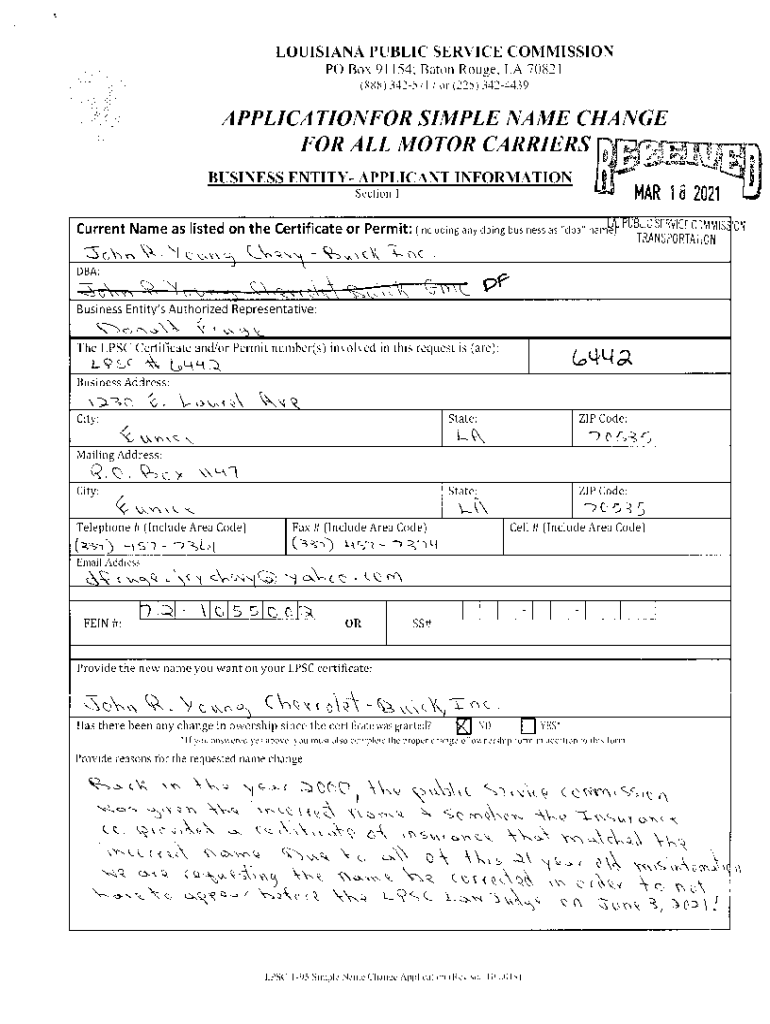 LOUISIANA PUBLIC SERVICE COMMISSION
PO Box 91154; Baton Rouge, LA 70821
(888) 342-5717 or (225) 342-4439
APPLICATIONFOR SIMPLE NAME CHANGE
FOR ALL MOTOR CARRIERS
RECEIVED
MAR 18 2021
LA. PUBLIC SERVICE COMMISSION
TRANSPORTATION
BUSINESS ENTITY- APPLICANT INFORMATION
Section I
Current Name as listed on the Certificate or Permit: (including any doing business as "dba" name)
John R. Young Chevy-Buick Inc.
DBA:
John R Young Chevrolet Buick GMC DF
Business Entity's Authorized Representative:
Donald Fruge
The LPSC Certificate and/or Permit number(s) involved in this request is (are):
LPSC # 6442
6442
Business Address:
1230 E. Laurel Ave
City: State: ZIP Code:
Eunice LA 70535
Mailing Address:
P.O. Box 1147
City: State: ZIP Code:
Eunice LA 70535
Telephone # (Include Area Code) Fax # (Include Area Code) Cell # (Include Area Code)
(337) -457-7361 (337) 457-7374
Email Address
dfruge.jrychevy@yahoo.com
FEIN #: 72-1055002 OR SS# - -
Provide the new name you want on your LPSC certificate:
John R. Young Chevrolet-Buick, Inc.
Has there been any change in owership since the certificate was granted? X NO YES*
*If you answered yes above, you must also complete the proper change of ownership form in addition to this form
Provide reasons for the requested name change
Back in the year 2000, the public service commission
was given the incorrect name & somehow the Insurance
co. provided a certificate of insurance that matched the
incorrect name Due to all of this 21 year old misinformation
we are requesting the name be corrected in order to not
have to appear before the LPSC Law Judge on June 3, 2021!
LPSC T-95 Simple Name Change Application